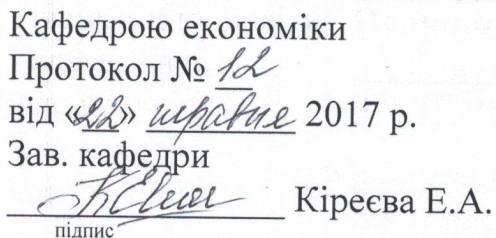 Кафедрою економіки
Протокол № 12
від «22» травня 2017 р.
Зав. кафедри
Кіреєва Е.А.
підпис